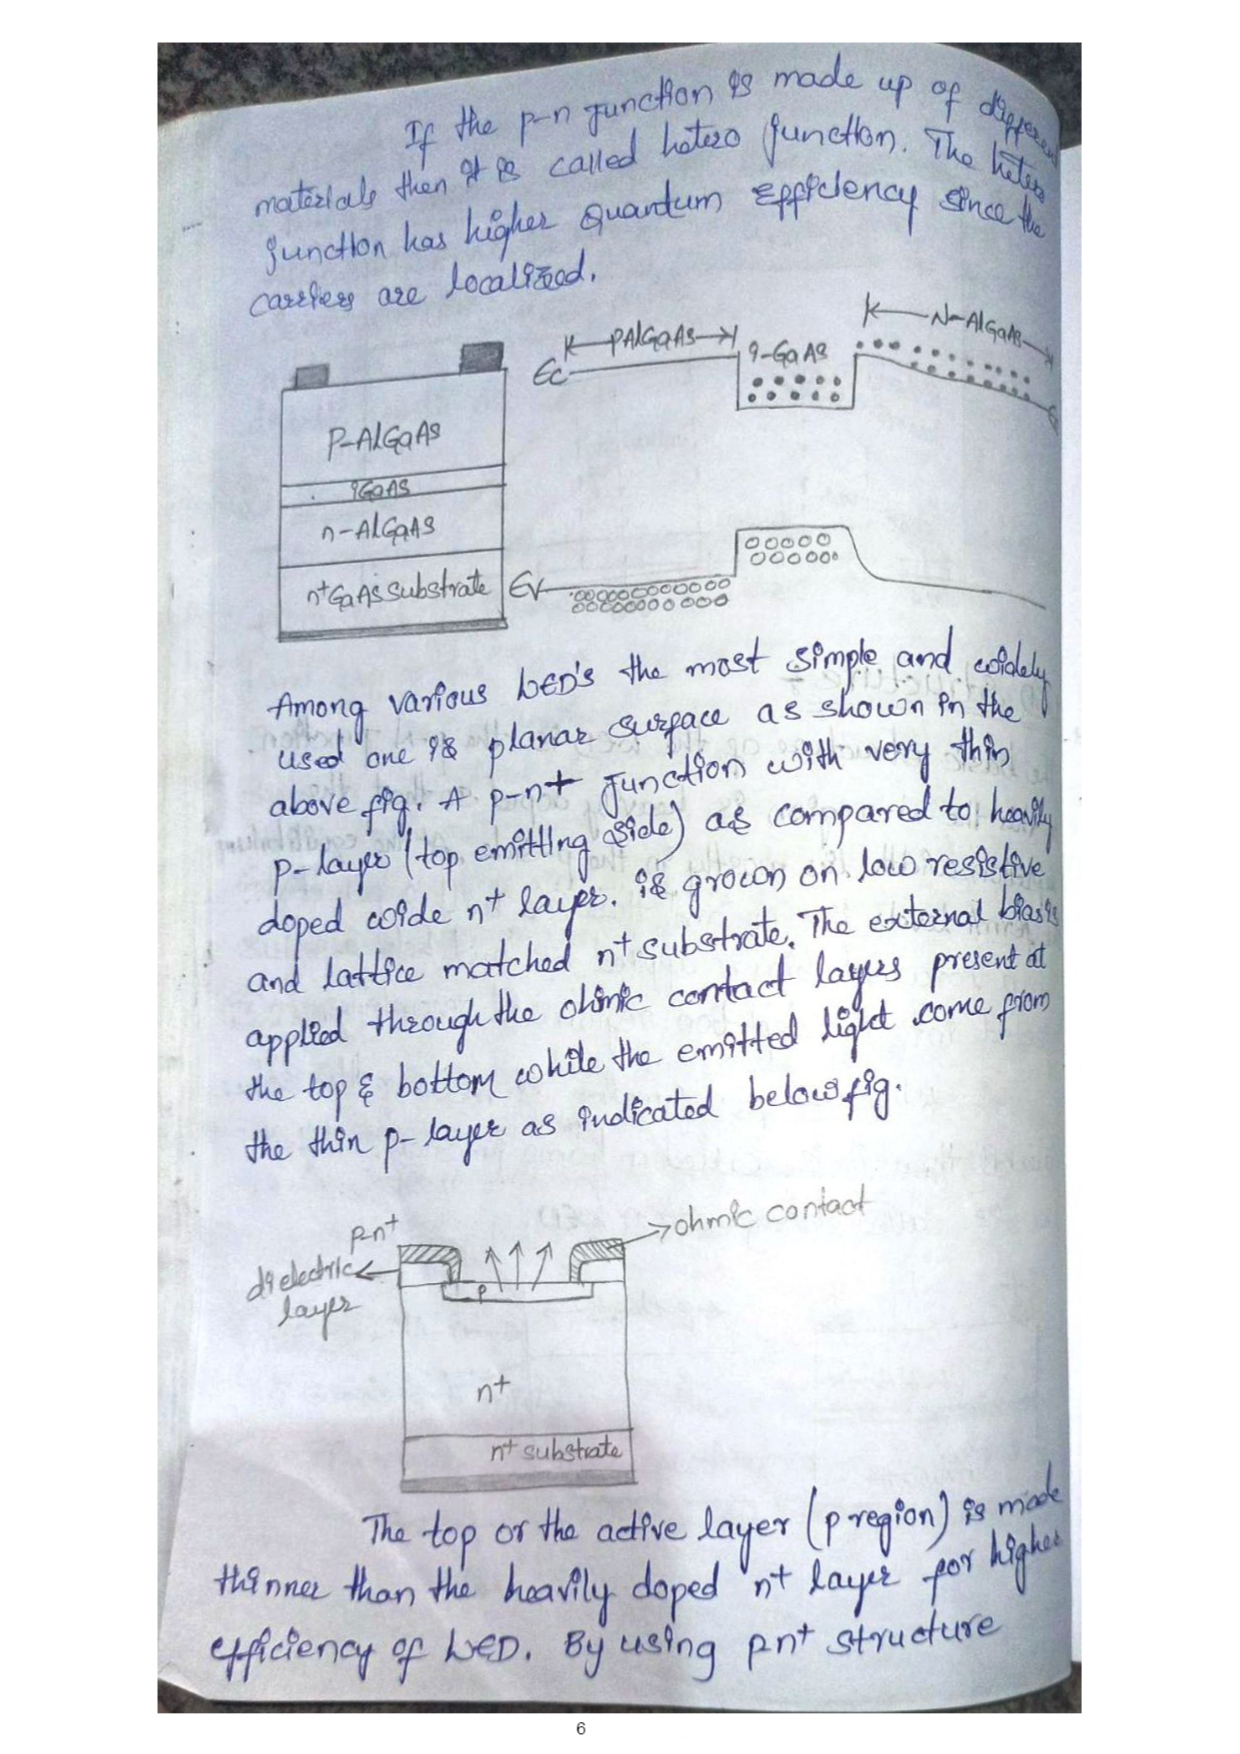 If the p-n junction is made up of different
materials then it is called hetero junction. The hetero
junction has higher Quantum Efficiency since the
carriers are localized.
N-AlGaAs
PAlGaAs
i-GaAs
Ec
P-AlGaAs
iGaAs
n-AlGaAs
n+GaAs substrate
Ev
Among various LED's the most simple and widely
used one is planar surface as shown in the
above fig. A p-n+ junction with very thin
p-layer (top emitting side) as compared to heavily
doped wide n+ layer. is grown on low resistive
and lattice matched n+ substrate. The external bias is
applied through the ohmic contact layers present at
the top & bottom while the emitted light come from
the thin p-layer as indicated below fig.
p-n+
ohmic contact
di electric
layer
p
n+
n+ substrate
The top or the active layer (p region) is made
thinner than the heavily doped n+ layer for higher
efficiency of LED. By using pn+ structure
6